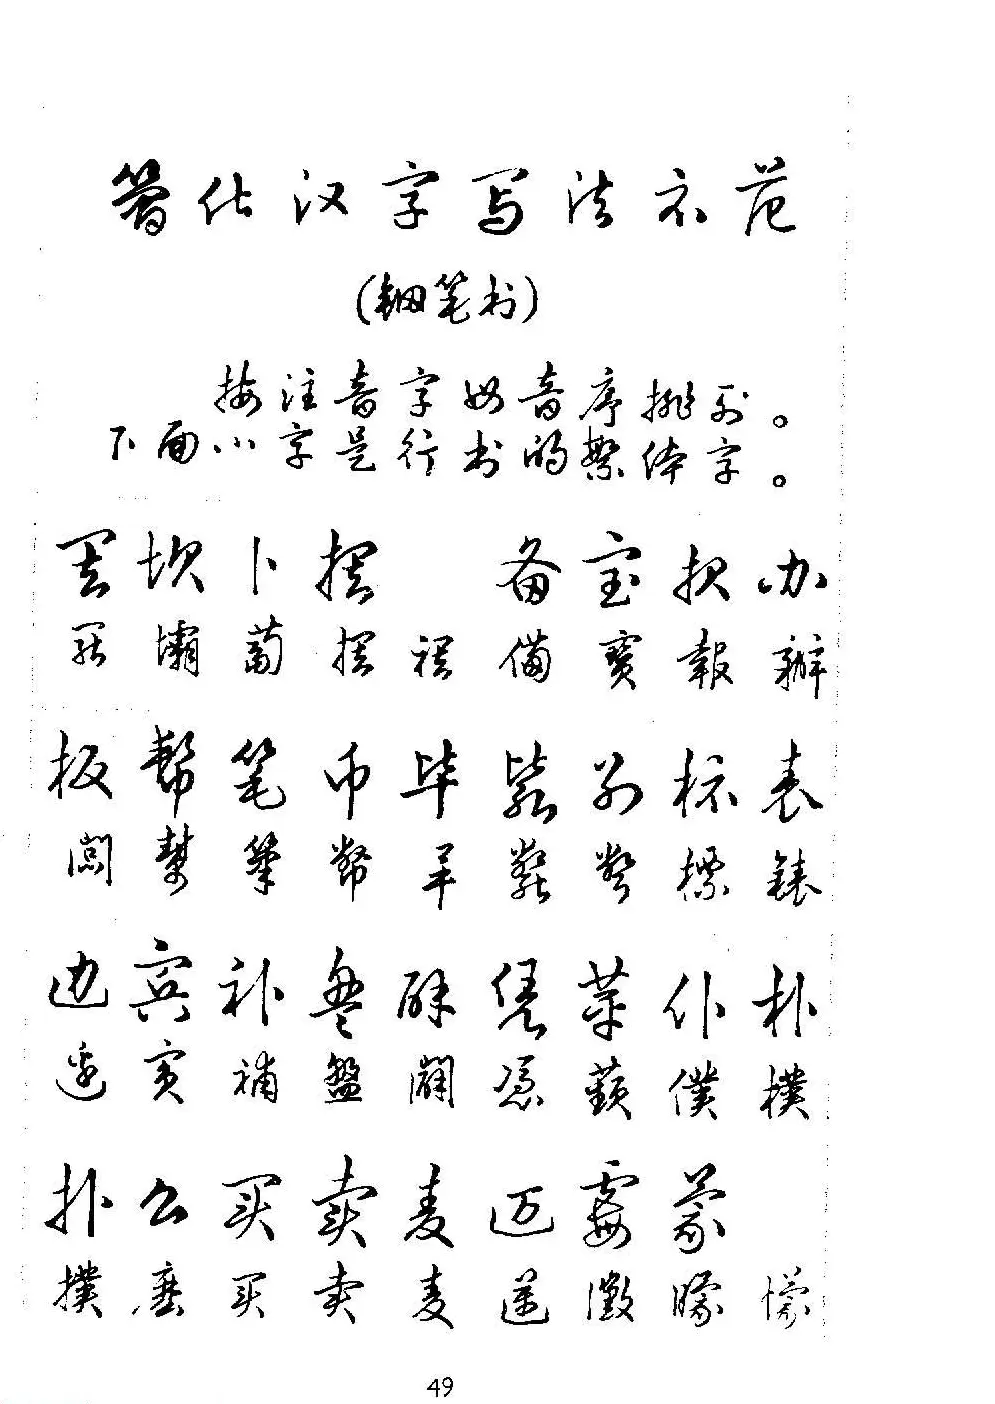 简化汉字写法示范
(钢笔书)
按注音字母音序排列。
下面小字是行书的繁体字。
罢 坝 卜 摆 备 宝 报 办
罷 壩 蔔 擺 襬 備 寶 報 辦
板 帮 笔 币 毕 毙 别 标 表
闆 幫 筆 幣 畢 斃 彆 標 錶
边 宾 补 盘 辟 凭 苹 仆 朴
邊 賓 補 盤 闢 憑 蘋 僕 樸
扑 么 买 卖 麦 迈 霉 蒙
撲 麼 買 賣 麥 邁 黴 矇 懞
49